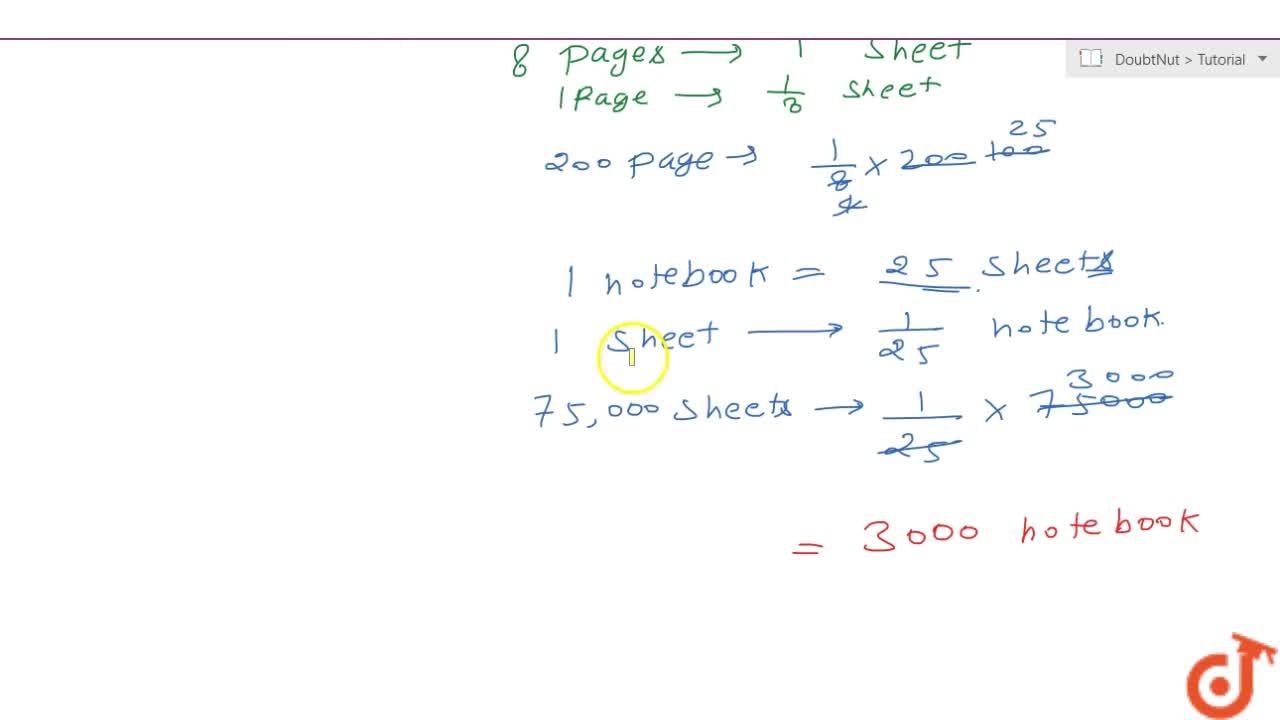 8 pages → 1 sheet
DoubtNut > Tutorial
1 Page → 1/8 sheet
200 page → 1/8 × 200 100 25
4
1 notebook = 25 sheets
1 sheet → 1/25 notebook.
75,000 sheets → 1/25 × 75000 3000
= 3000 notebook